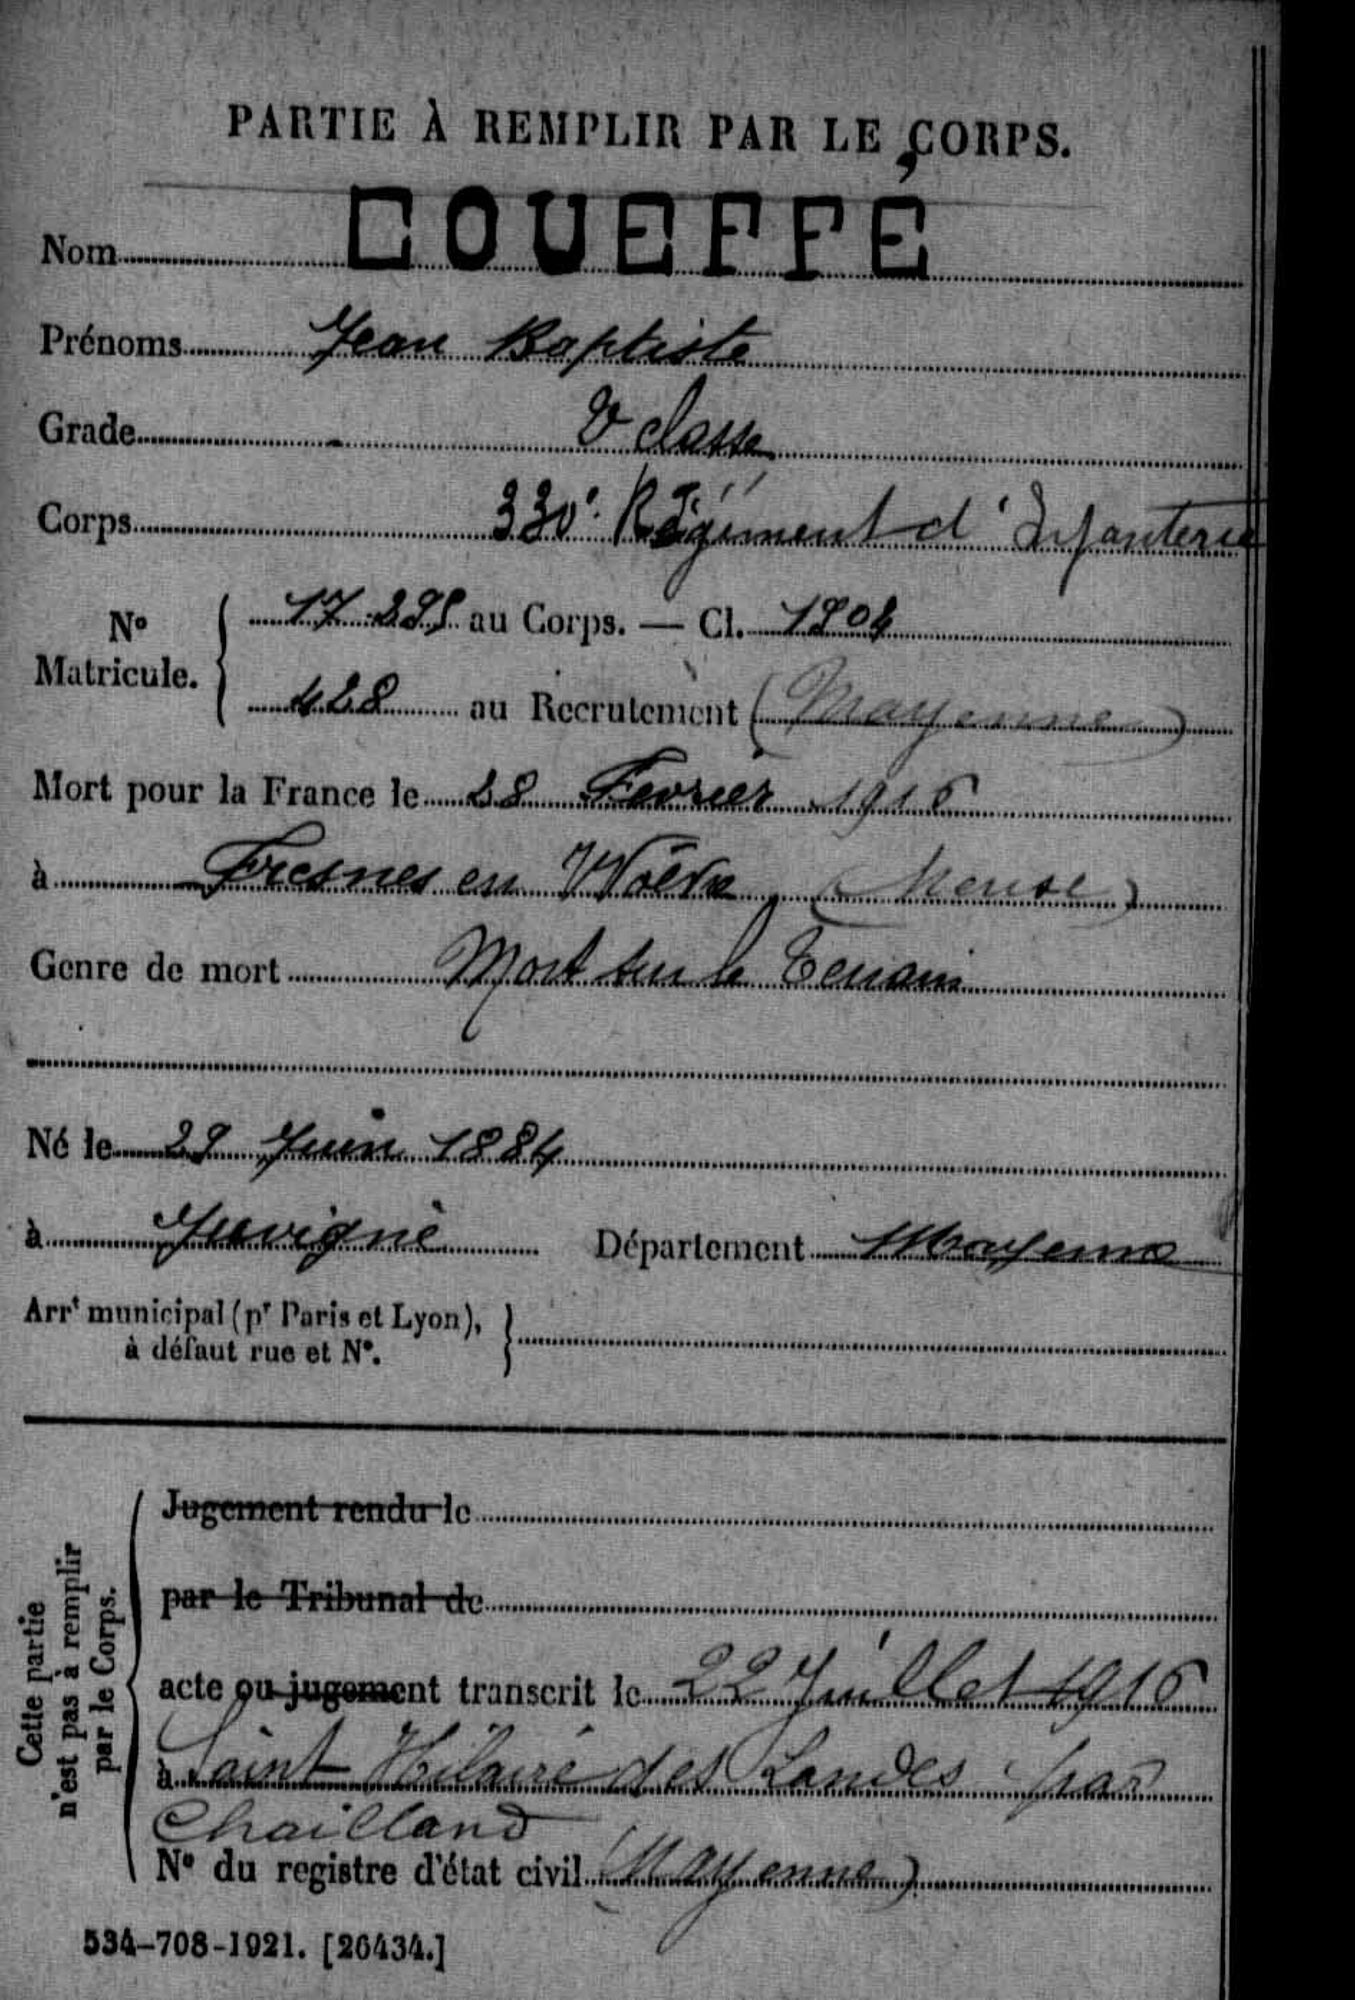 PARTIE À REMPLIR PAR LE CORPS.
Nom COUEFFÉ
Prénoms Jean Baptiste
Grade 2e classe
Corps 330e Régiment d'Infanterie
N° Matricule. 17.295 au Corps. — Cl. 1904
428 au Recrutement (Mayenne)
Mort pour la France le 28 Février 1916
à Fresnes en Woëvre (Meuse)
Genre de mort Mort sur le Terrain
Né le 29 Juin 1884
à Juvigné Département Mayenne
Arrt municipal (pr Paris et Lyon),
à défaut rue et N°.
Cette partie
n'est pas à remplir
par le Corps.
Jugement rendu le
par le Tribunal de
acte ou jugement transcrit le 22 Juillet 1916
à Saint Hilaire des Landes par
Chailland
N° du registre d'état civil (Mayenne)
534-708-1921. [26434.]